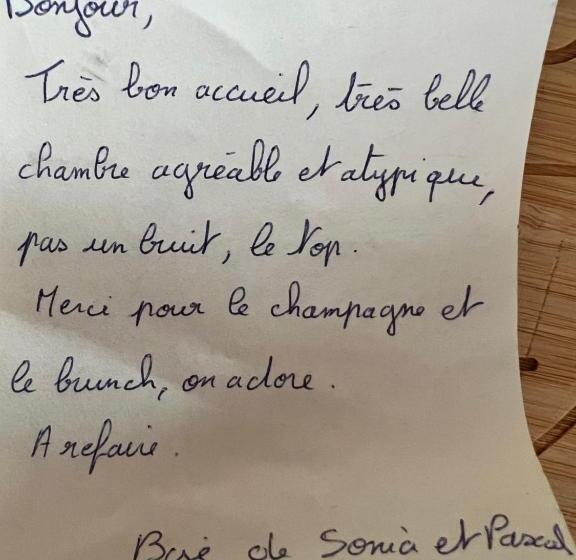 Bonjour,
Très bon accueil, très belle
chambre agréable et atypique,
pas un bruit, le top.
Merci pour le champagne et
le brunch, on adore.
A refaire.
Bise de Sonia et Pascal